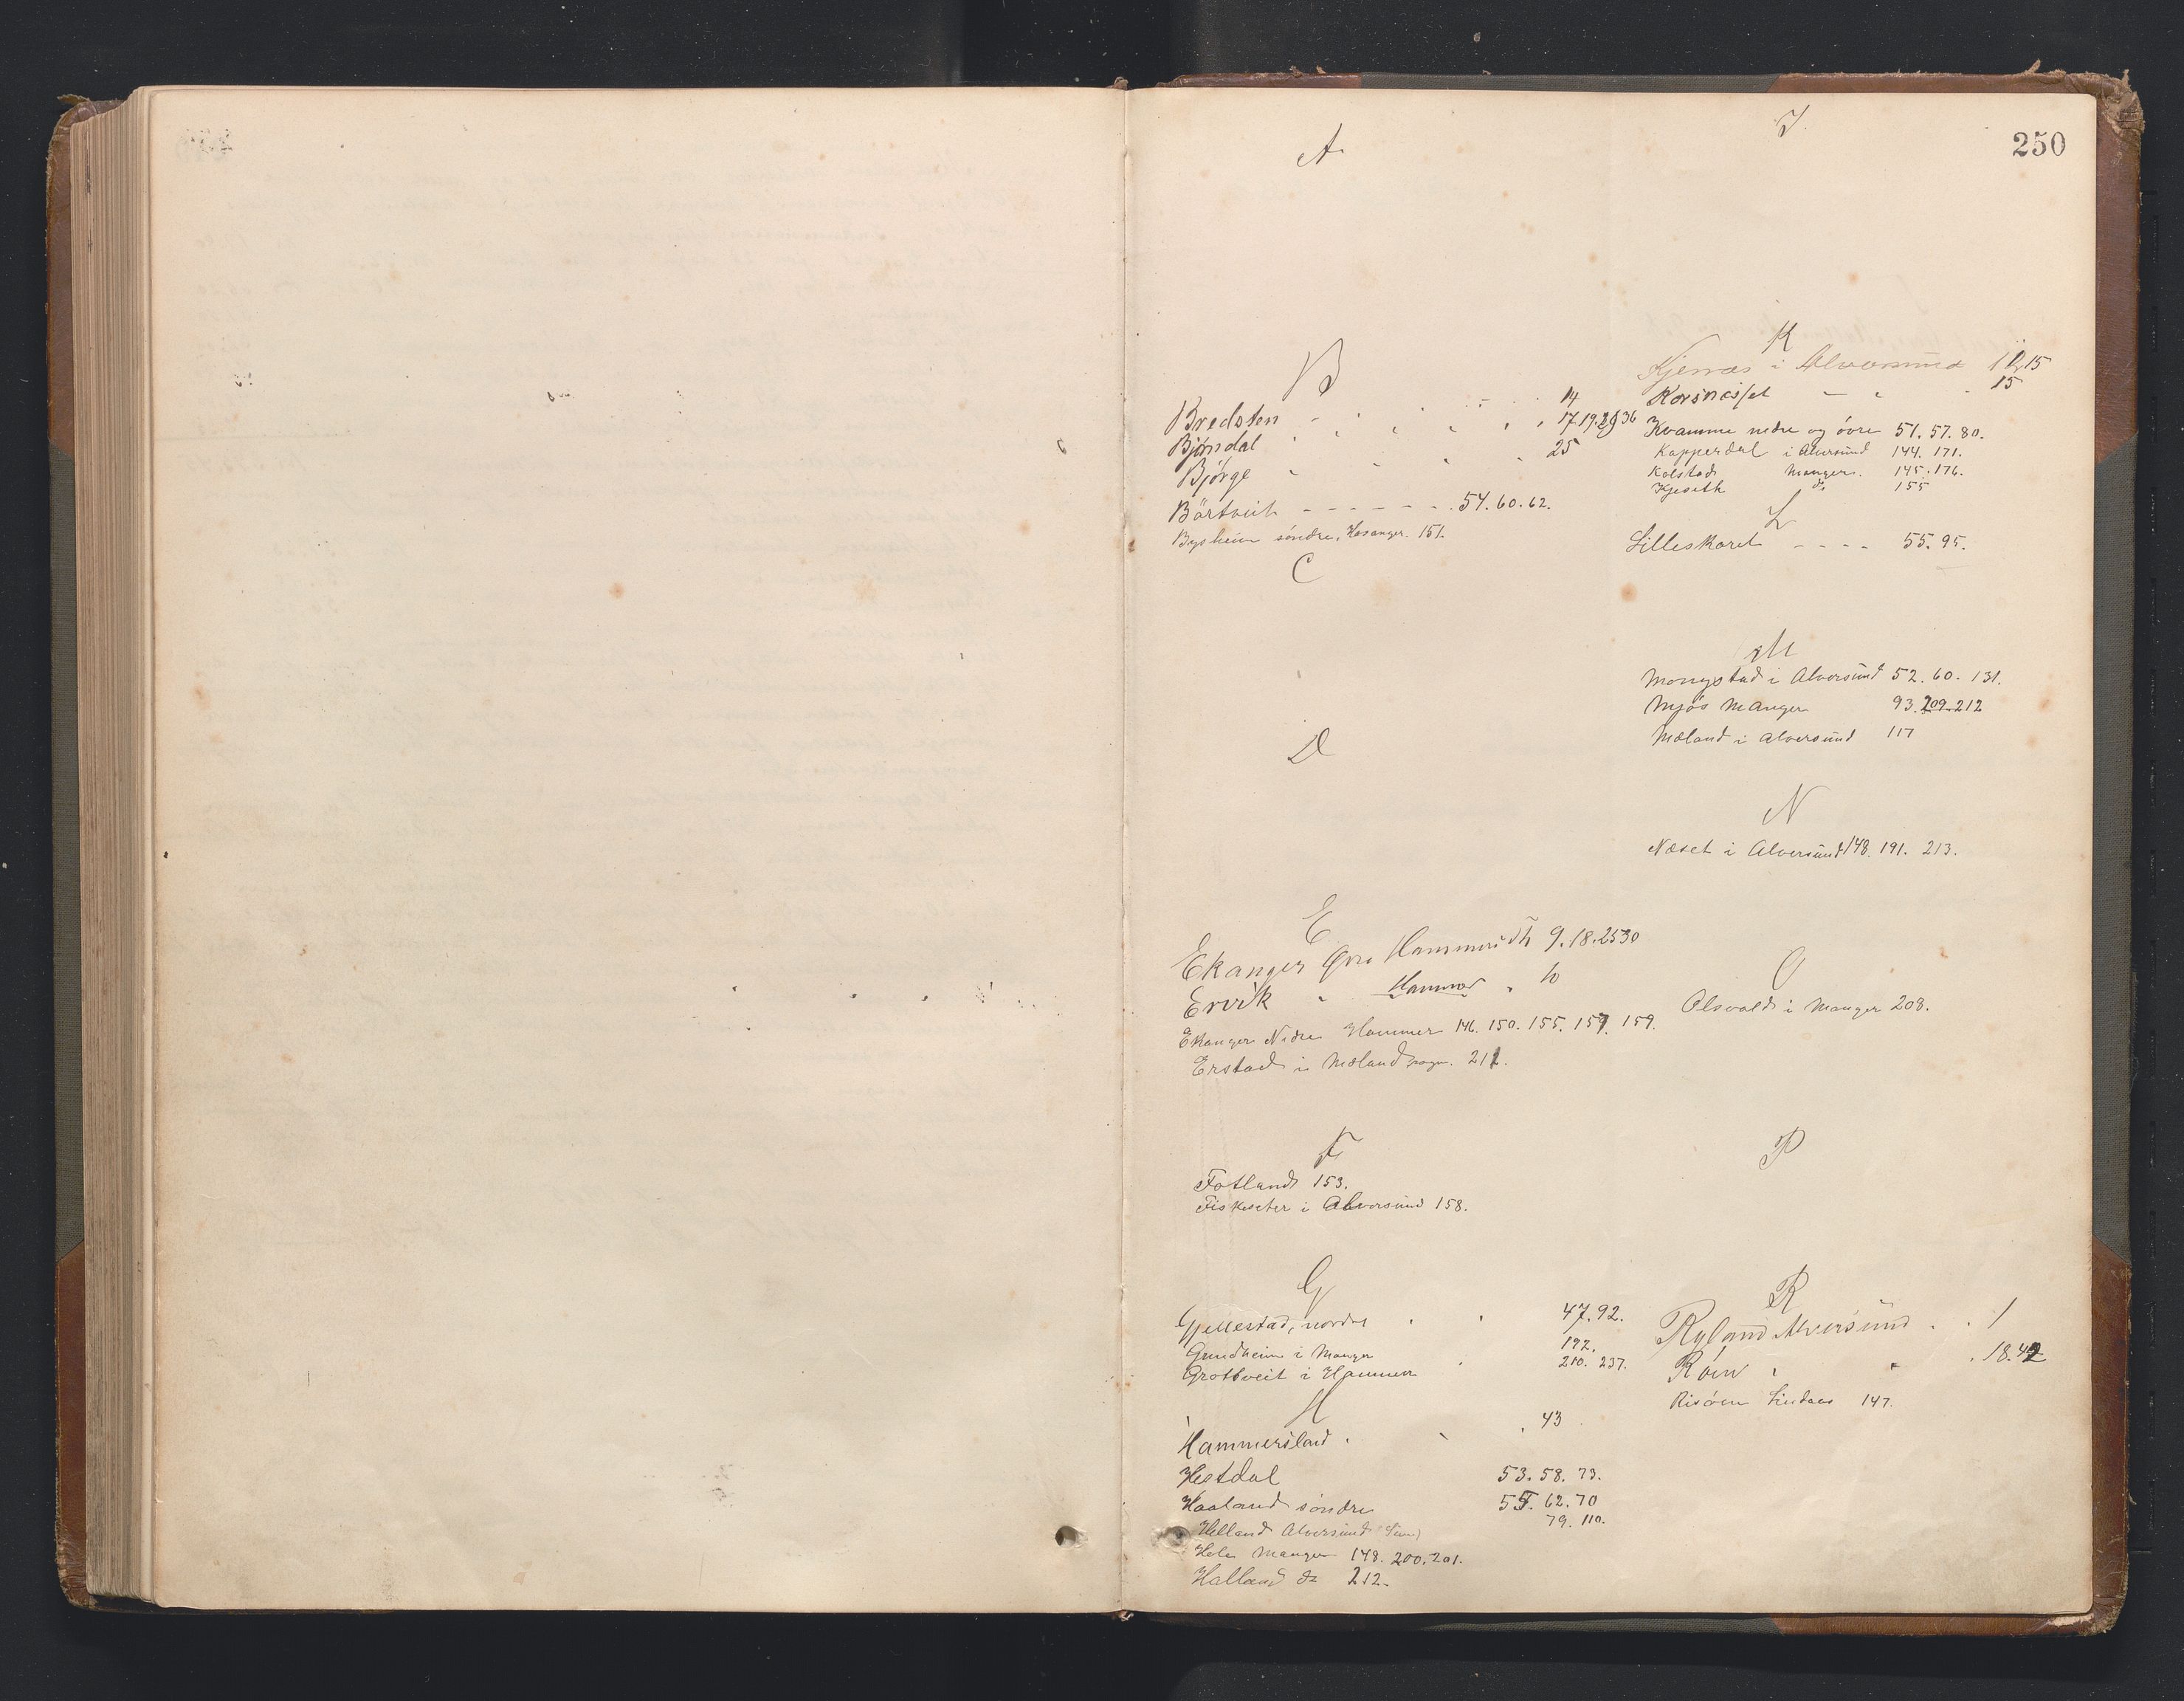 250
A
B
Bredsten 14
Bjørndal 17.19.29 36
Bjørge 25
Börtveit - - - - - - 54. 60. 62.
Bysheim söndre, Hosanger. 151.
C
D
E
Ekanger Øvre Hammer 9.18.25 30
Ervik " Hammer " 10
Ekanger Nedre Hammer 146. 150. 155. 157. 159.
Erstad i Mæland sogn. 212.
F
Fotland 153.
Fiskeseter i Alversund 158.
G
Gjellestad, nordre 47.92.
Grundheim i Manger 192.
Grottveit i Hammer 210. 237.
H
Hammersland 43
Hestdal 53. 58. 73.
Haaland söndre 55. 62. 70
Helland Alversund 79. 110.
Hele Manger 148. 200. 201.
Halland do 212.
J
K
Kjenæs i Alversund 15
Korsnæsset - " 15
Kvamme nedre og övre 51. 57. 80.
Kopperdal i Alversund 144. 171.
Kolstad Manger. 145. 176.
Kjeseth do 155
L
Lilleskaret - - - - 55. 95.
M
Mongstad i Alversund 52. 60. 131.
Mjös Manger 93. 209. 212
Mæland i Alversund 117
N
Næset i Alversund 148. 191. 213.
O
Olsvold i Manger 208.
P
R
Ryland Alversund . . 1
Röen " " . 18.42
Risöen Lindaas 147.